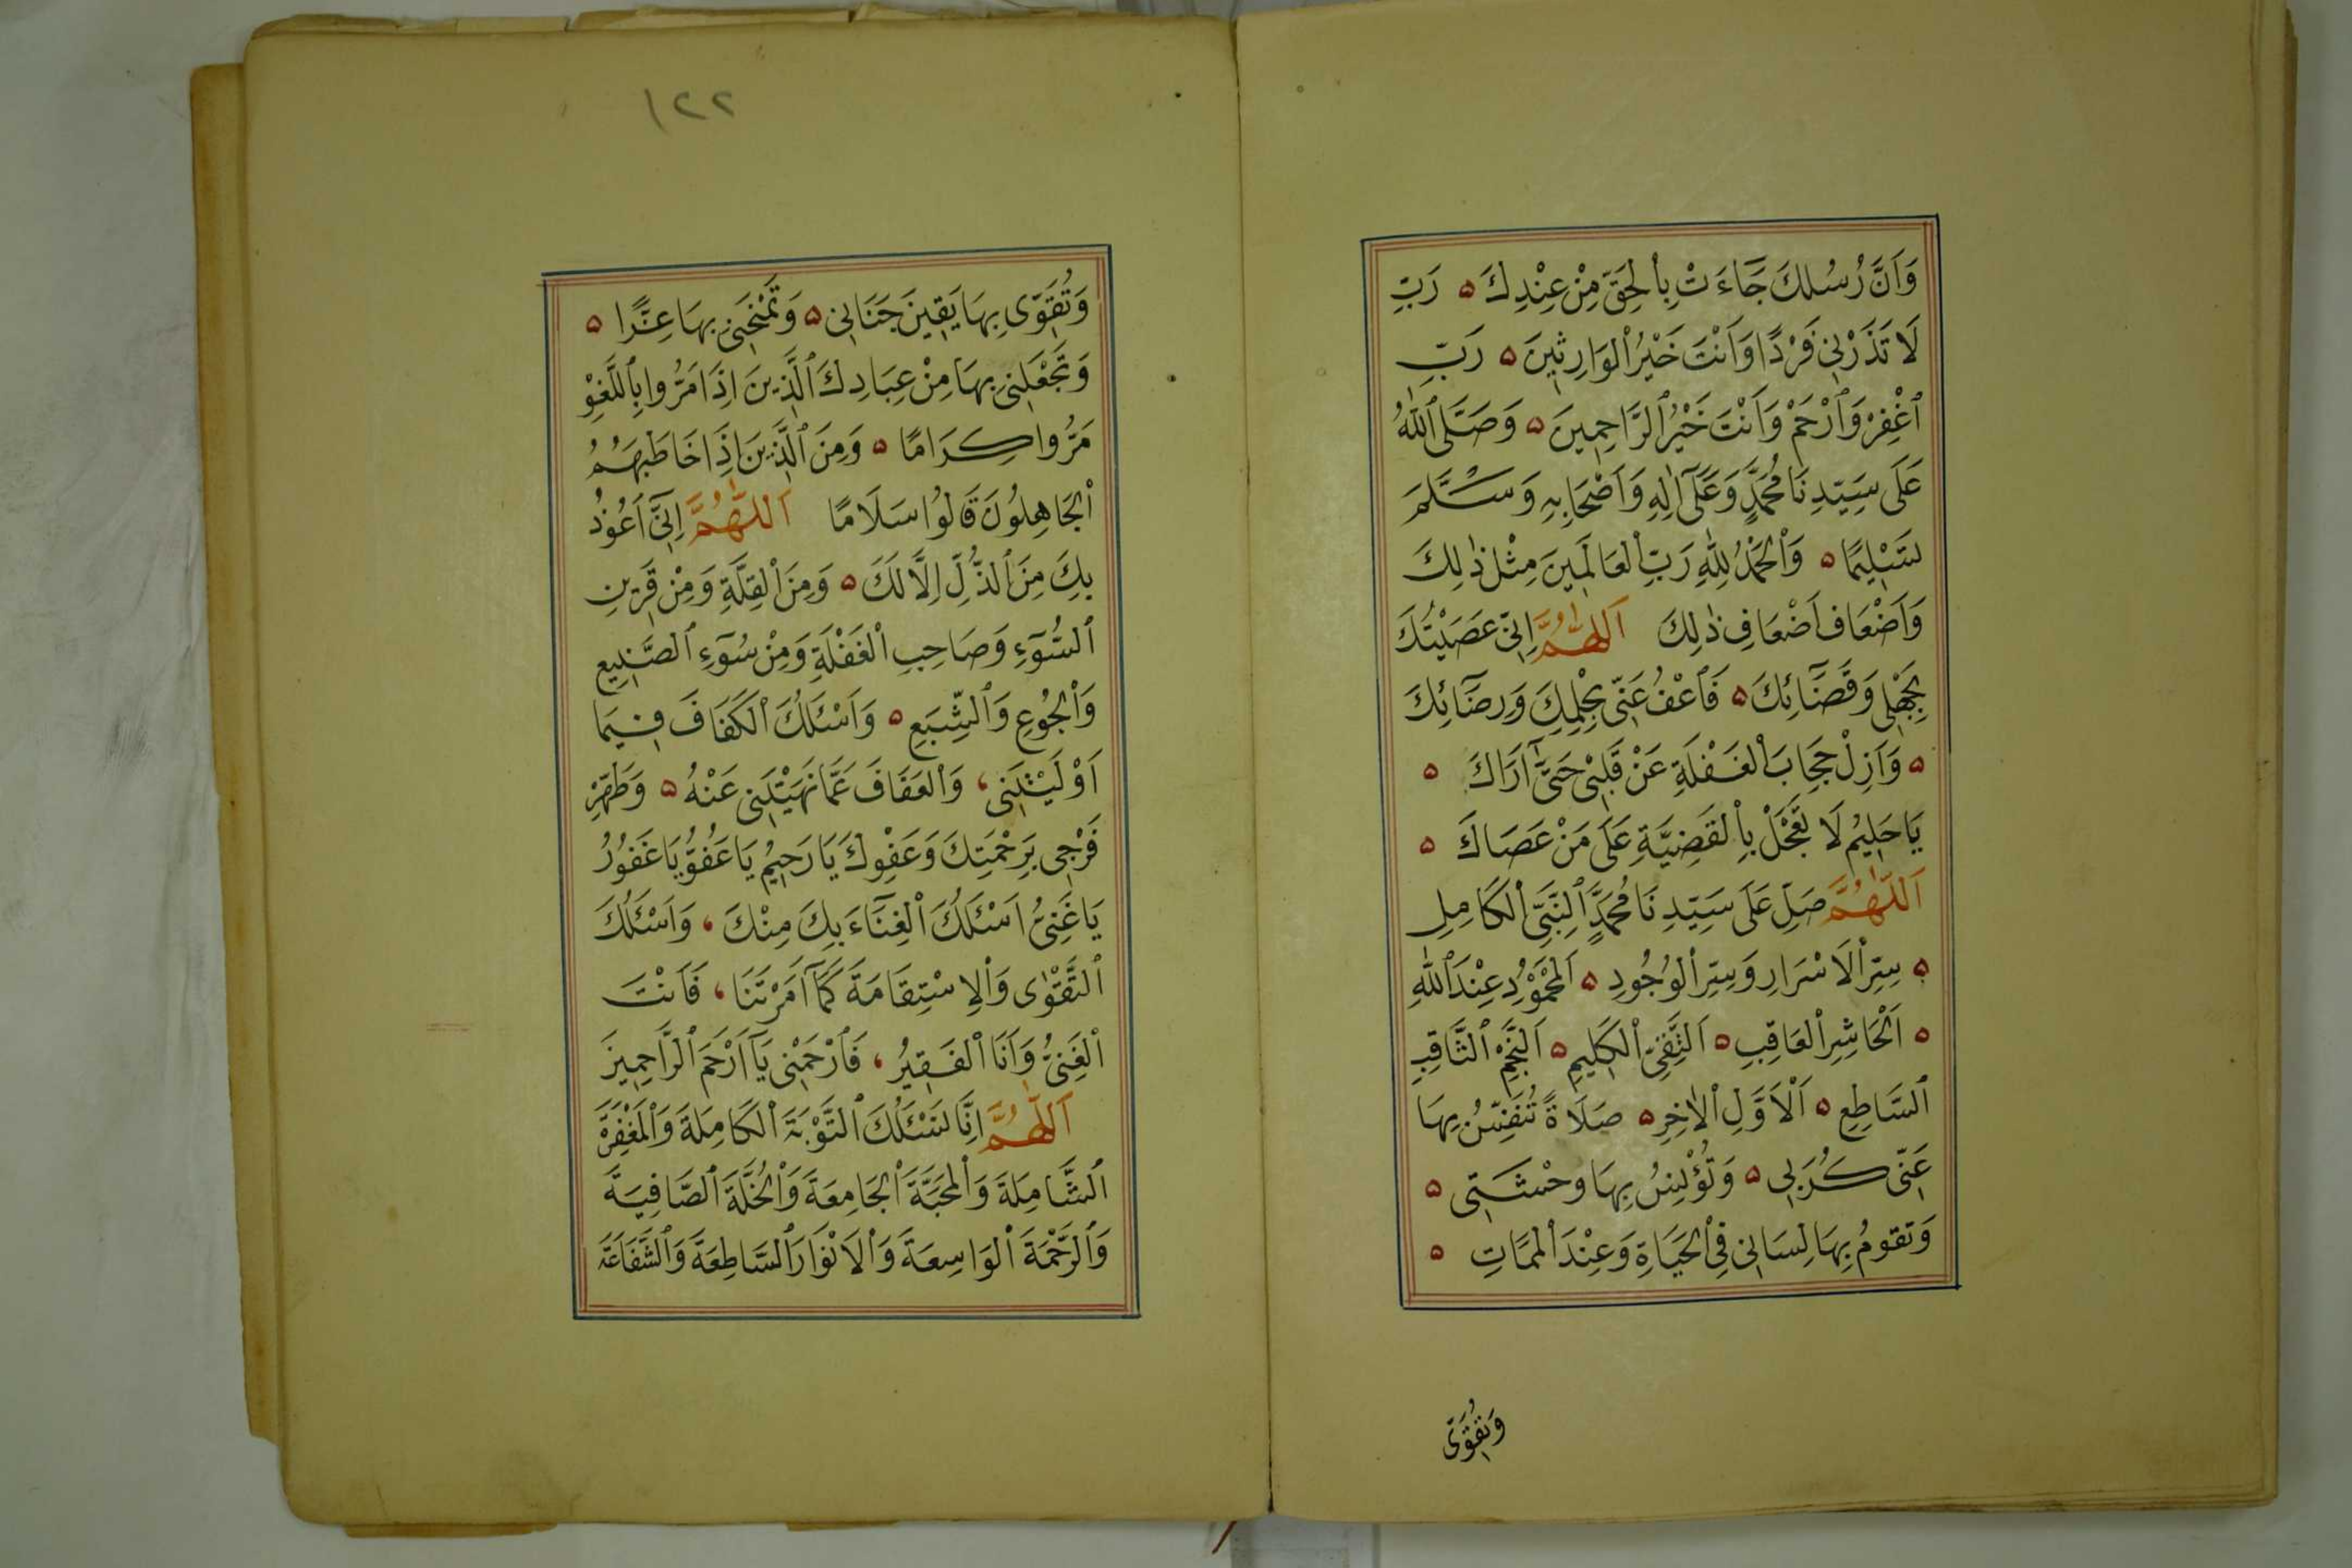 وَاَنَّ رُسُلَكَ جَّاءَتْ بِالْحَقِّ مِنْ عِنْدِكَ ۵ رَبِّ
لَا تَذَرْنِي فَرْدًا وَاَنْتَ خَيْرُ الْوَارِثِينَ ۵ رَبِّ
ٱغْفِرْ وَٱرْحَمْ وَاَنْتَ خَيْرُ ٱلرَّاحِمِينَ ۵ وَصَلَّى ٱللّٰهُ
عَلَى سَيِّدِنَا مُحَمَّدٍ وَعَلَى اٰلِهِ وَاَصْحَابِهِ وَسَلَّمَ
تَسْلِيمًا ۵ وَالْحَمْدُ لِلّٰهِ رَبِّ الْعَالَمِينَ مِثْلَ ذٰلِكَ
وَاَضْعَافَ اَضْعَافِ ذٰلِكَ اَللّٰهُمَّ اِنِّي عَصَيْتُكَ
بِجَهْلِى وَقَضَآئِكَ ۵ فَاعْفُ عَنِّى بِحِلْمِكَ وَرِضَآئِكَ
۵ وَاَزِلْ حِجَابَ الْغَفْلَةِ عَنْ قَلْبِى حَتَّى اَرَاكَ ۵
يَا حَلِيمُ لَا تَعْجَلْ بِالْقَضِيَّةِ عَلَى مَنْ عَصَاكَ ۵
اَللّٰهُمَّ صَلِّ عَلَى سَيِّدِنَا مُحَمَّدٍ ٱلنَّبِىِّ الْكَامِلِ
۵ سِرِّ الْاَسْرَارِ وَسِرِّ الْوُجُودِ ۵ اَلْمَحْمُوْدِ عِنْدَ ٱللّٰهِ
۵ اَلْحَاشِرِ الْعَاقِبِ ۵ اَلتَّقِىِّ الْكَلِيمِ ۵ اَلنَّجْمِ ٱلثَّاقِبِ
ٱلسَّاطِعِ ۵ اَلْاَوَّلِ الْاٰخِرِ ۵ صَلَاةً تُنَفِّسُ بِهَا
عَنِّى كُرَبِى ۵ وَتُؤْنِسُ بِهَا وَحْشَتِى ۵
وَتَقُومُ بِهَا لِسَانِى فِى الْحَيَاةِ وَعِنْدَ الْمَمَاتِ ۵
وَتُقَوِّى
١٢٢
وَتُقَوِّى بِهَا يَقِينَ جَنَانِى ۵ وَتَمْنَحُنِى بِهَا عِزًّا ۵
وَتَجْعَلُنِى بِهَا مِنْ عِبَادِكَ ٱلَّذِينَ اِذَا مَرُّوا بِٱللَّغْوِ
مَرُّوا كِرَامًا ۵ وَمِنَ ٱلَّذِينَ اِذَا خَاطَبَهُمُ
الْجَاهِلُونَ قَالُوا سَلَامًا اَللّٰهُمَّ اِنِّى اَعُوذُ
بِكَ مِنَ ٱلذُّلِّ اِلَّا لَكَ ۵ وَمِنَ الْقِلَّةِ وَمِنْ قَرِينِ
ٱلسُّوٓءِ وَصَاحِبِ الْغَفْلَةِ وَمِنْ سُوٓءِ ٱلصَّنِيعِ
وَالْجُوعِ وَٱلشِّبَعِ ۵ وَاَسْئَلُكَ الْكَفَافَ فِيمَا
اَوْلَيْتَنِى، وَالْعَفَافَ عَمَّا نَهَيْتَنِى عَنْهُ ۵ وَطَهِّرْ
فَرْجِى بِرَحْمَتِكَ وَعَفْوِكَ يَا رَحِيمُ يَا عَفُوُّ يَا غَفُورُ
يَا غَنِىُّ اَسْئَلُكَ الْغِنَآءَ بِكَ مِنْكَ، وَاَسْئَلُكَ
ٱلتَّقْوٰى وَالْاِسْتِقَامَةَ كَمَآ اَمَرْتَنَا، فَاَنْتَ
الْغَنِىُّ وَاَنَا الْفَقِيرُ، فَٱرْحَمْنِى يَآ اَرْحَمَ ٱلرَّاحِمِينَ
اَللّٰهُمَّ اِنَّا نَسْئَلُكَ ٱلتَّوْبَةَ الْكَامِلَةَ وَالْمَغْفِرَةَ
ٱلشَّامِلَةَ وَالْمَحَبَّةَ الْجَامِعَةَ وَالْخُلَّةَ ٱلصَّافِيَةَ
وَٱلرَّحْمَةَ الْوَاسِعَةَ وَالْاَنْوَارَ ٱلسَّاطِعَةَ وَٱلشَّفَاعَةَ